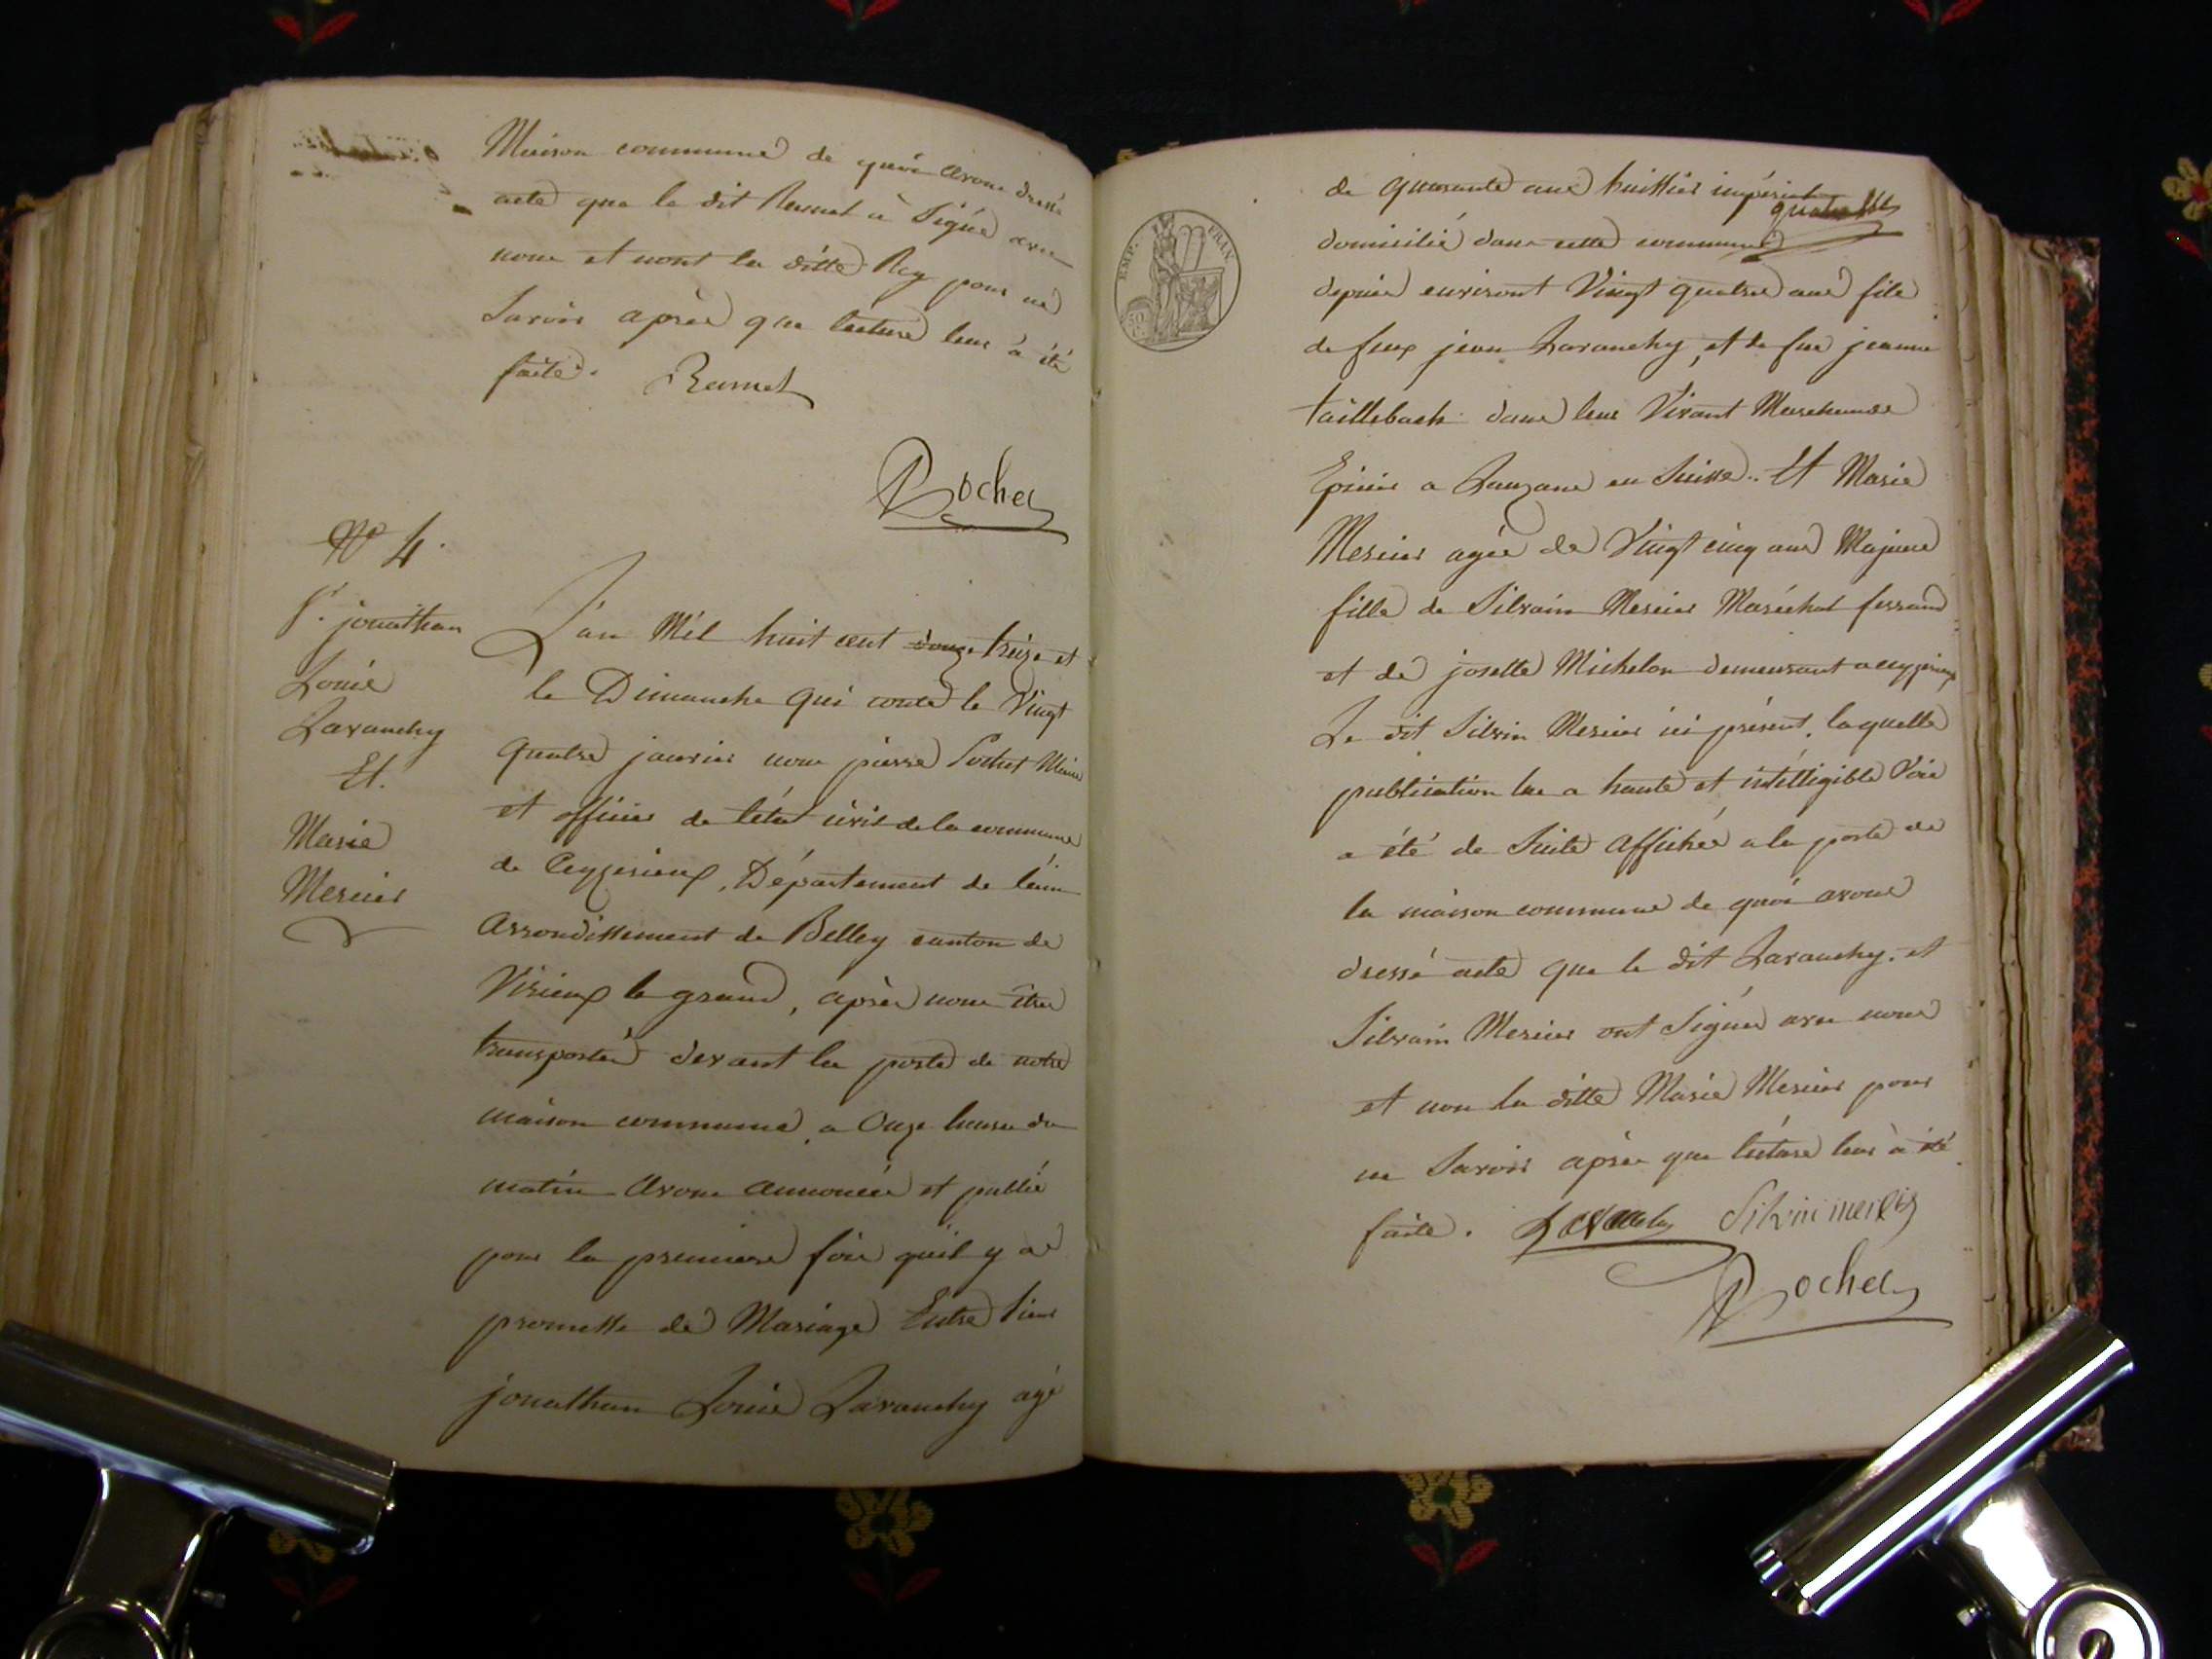 Maison commune de quoi avons dressé
acte que le dit Ramel a Signé avec
nous et nont la ditte Rey pour ne
Savoir après que lecture leur à été
faite. Ramel
Rochet
N° 4.
Sr. jonathan
Louis
Lavanchy
Et.
Marie
Mercier
L'an Mil huit cent douze treize et
le Dimanche qui conte le Vingt
quatre janvier nous pierre Rochet Maire
et officier de l'état civil de la commune
de Ceyzerieux, Département de l'ain
Arrondissement de Belley canton de
Virieux le grand, après nous être
transporté devant la porte de notre
maison commune, a Onze heures du
matin Avons annoncée et publié
pour la premiere fois qu'il y a
promesse de Mariage Entre Sieur
jonathan Louis Lavanchy agé
EMP. FRAN.
50
de quarante ans huissier impérial
domicilié dans cette commune
depuis environt Vingt quatre ans fils
de feux jean Lavanchy, et de fue jeanne
taillebach dans leur Vivant Marchands
Epicier a Lauzane en Suisse.. Et Marie
Mercier agée de Vingt cinq ans Majeure
fille de Silvain Mercier Maréchal ferrand
et de josette Michelon demeurant a ceyzerieux
Le dit Silvin Mercier ici présent, laquelle
publication lue a haute et intélligible Voie
a été de Suite Affichée a la porte de
la maison commune de quoi avons
dressé acte que le dit Lavanchy. et
Silvain Mercier ont Signés avec nous
et non la ditte Marie Mercier pour
ne Savoir après que lecture leur à été
faite. Lavanchy Silvin mercier
Rochet